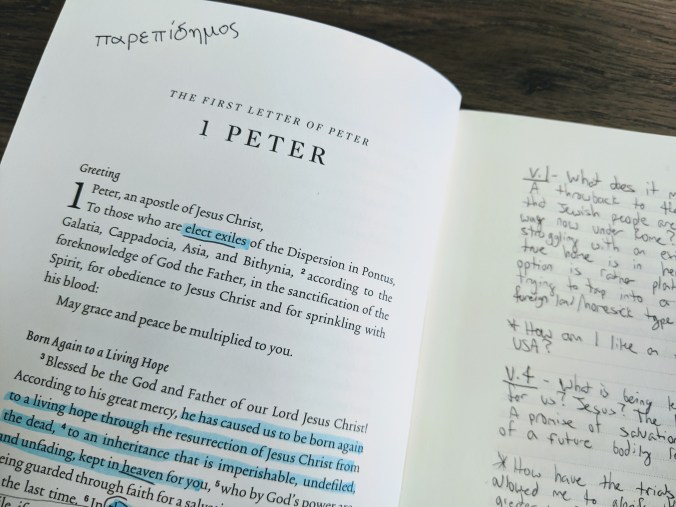 παρεπίδημος
THE FIRST LETTER OF PETER
1 PETER
Greeting
1 Peter, an apostle of Jesus Christ,
To those who are elect exiles of the Dispersion in Pontus,
Galatia, Cappadocia, Asia, and Bithynia, 2 according to the
foreknowledge of God the Father, in the sanctification of the
Spirit, for obedience to Jesus Christ and for sprinkling with
his blood:
May grace and peace be multiplied to you.
Born Again to a Living Hope
3 Blessed be the God and Father of our Lord Jesus Christ!
According to his great mercy, he has caused us to be born again
to a living hope through the resurrection of Jesus Christ from
the dead, 4 to an inheritance that is imperishable, undefiled,
and unfading, kept in heaven for you, 5 who by God's power are
eing guarded through faith for a salva
the last time. 6 In
v.1- What does it
A throwback to the
Jewish people are
way now under Rome?
struggling with an
true home is in
option is rather
trying to tap into a
foreign land/homesick type
* How am I like an
USA?
v.4 - What is being
for us? Jesus? The
A promise of salvation
of a future bodily
* How have the trials
allowed me to